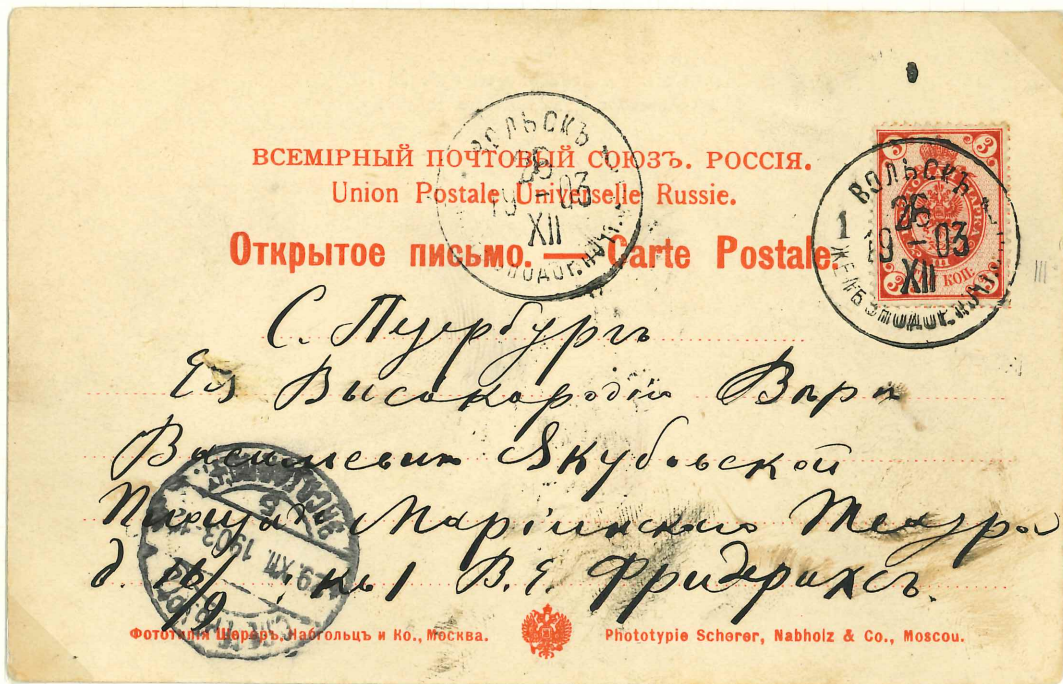 ВСЕМІРНЫЙ ПОЧТОВЫЙ СОЮЗЪ. РОССІЯ.
Union Postale Universelle Russie.
Открытое письмо. — Carte Postale.
ВОЛЬСКЪ
26
19-03
XII
3
ВОЛЬСКЪ
1
26
19-03
XII
КОП.
С. Петербургъ
Ея Высокородію Вѣрѣ
Васильевнѣ Якубовской
Площадь Маріинскаго Театра
д. 16/9 кв 1 В. Е. Фридерихсъ.
29.XII.1903
Фототипія Шереръ, Набгольцъ и Ко., Москва.
Phototypie Scherer, Nabholz & Co., Moscou.